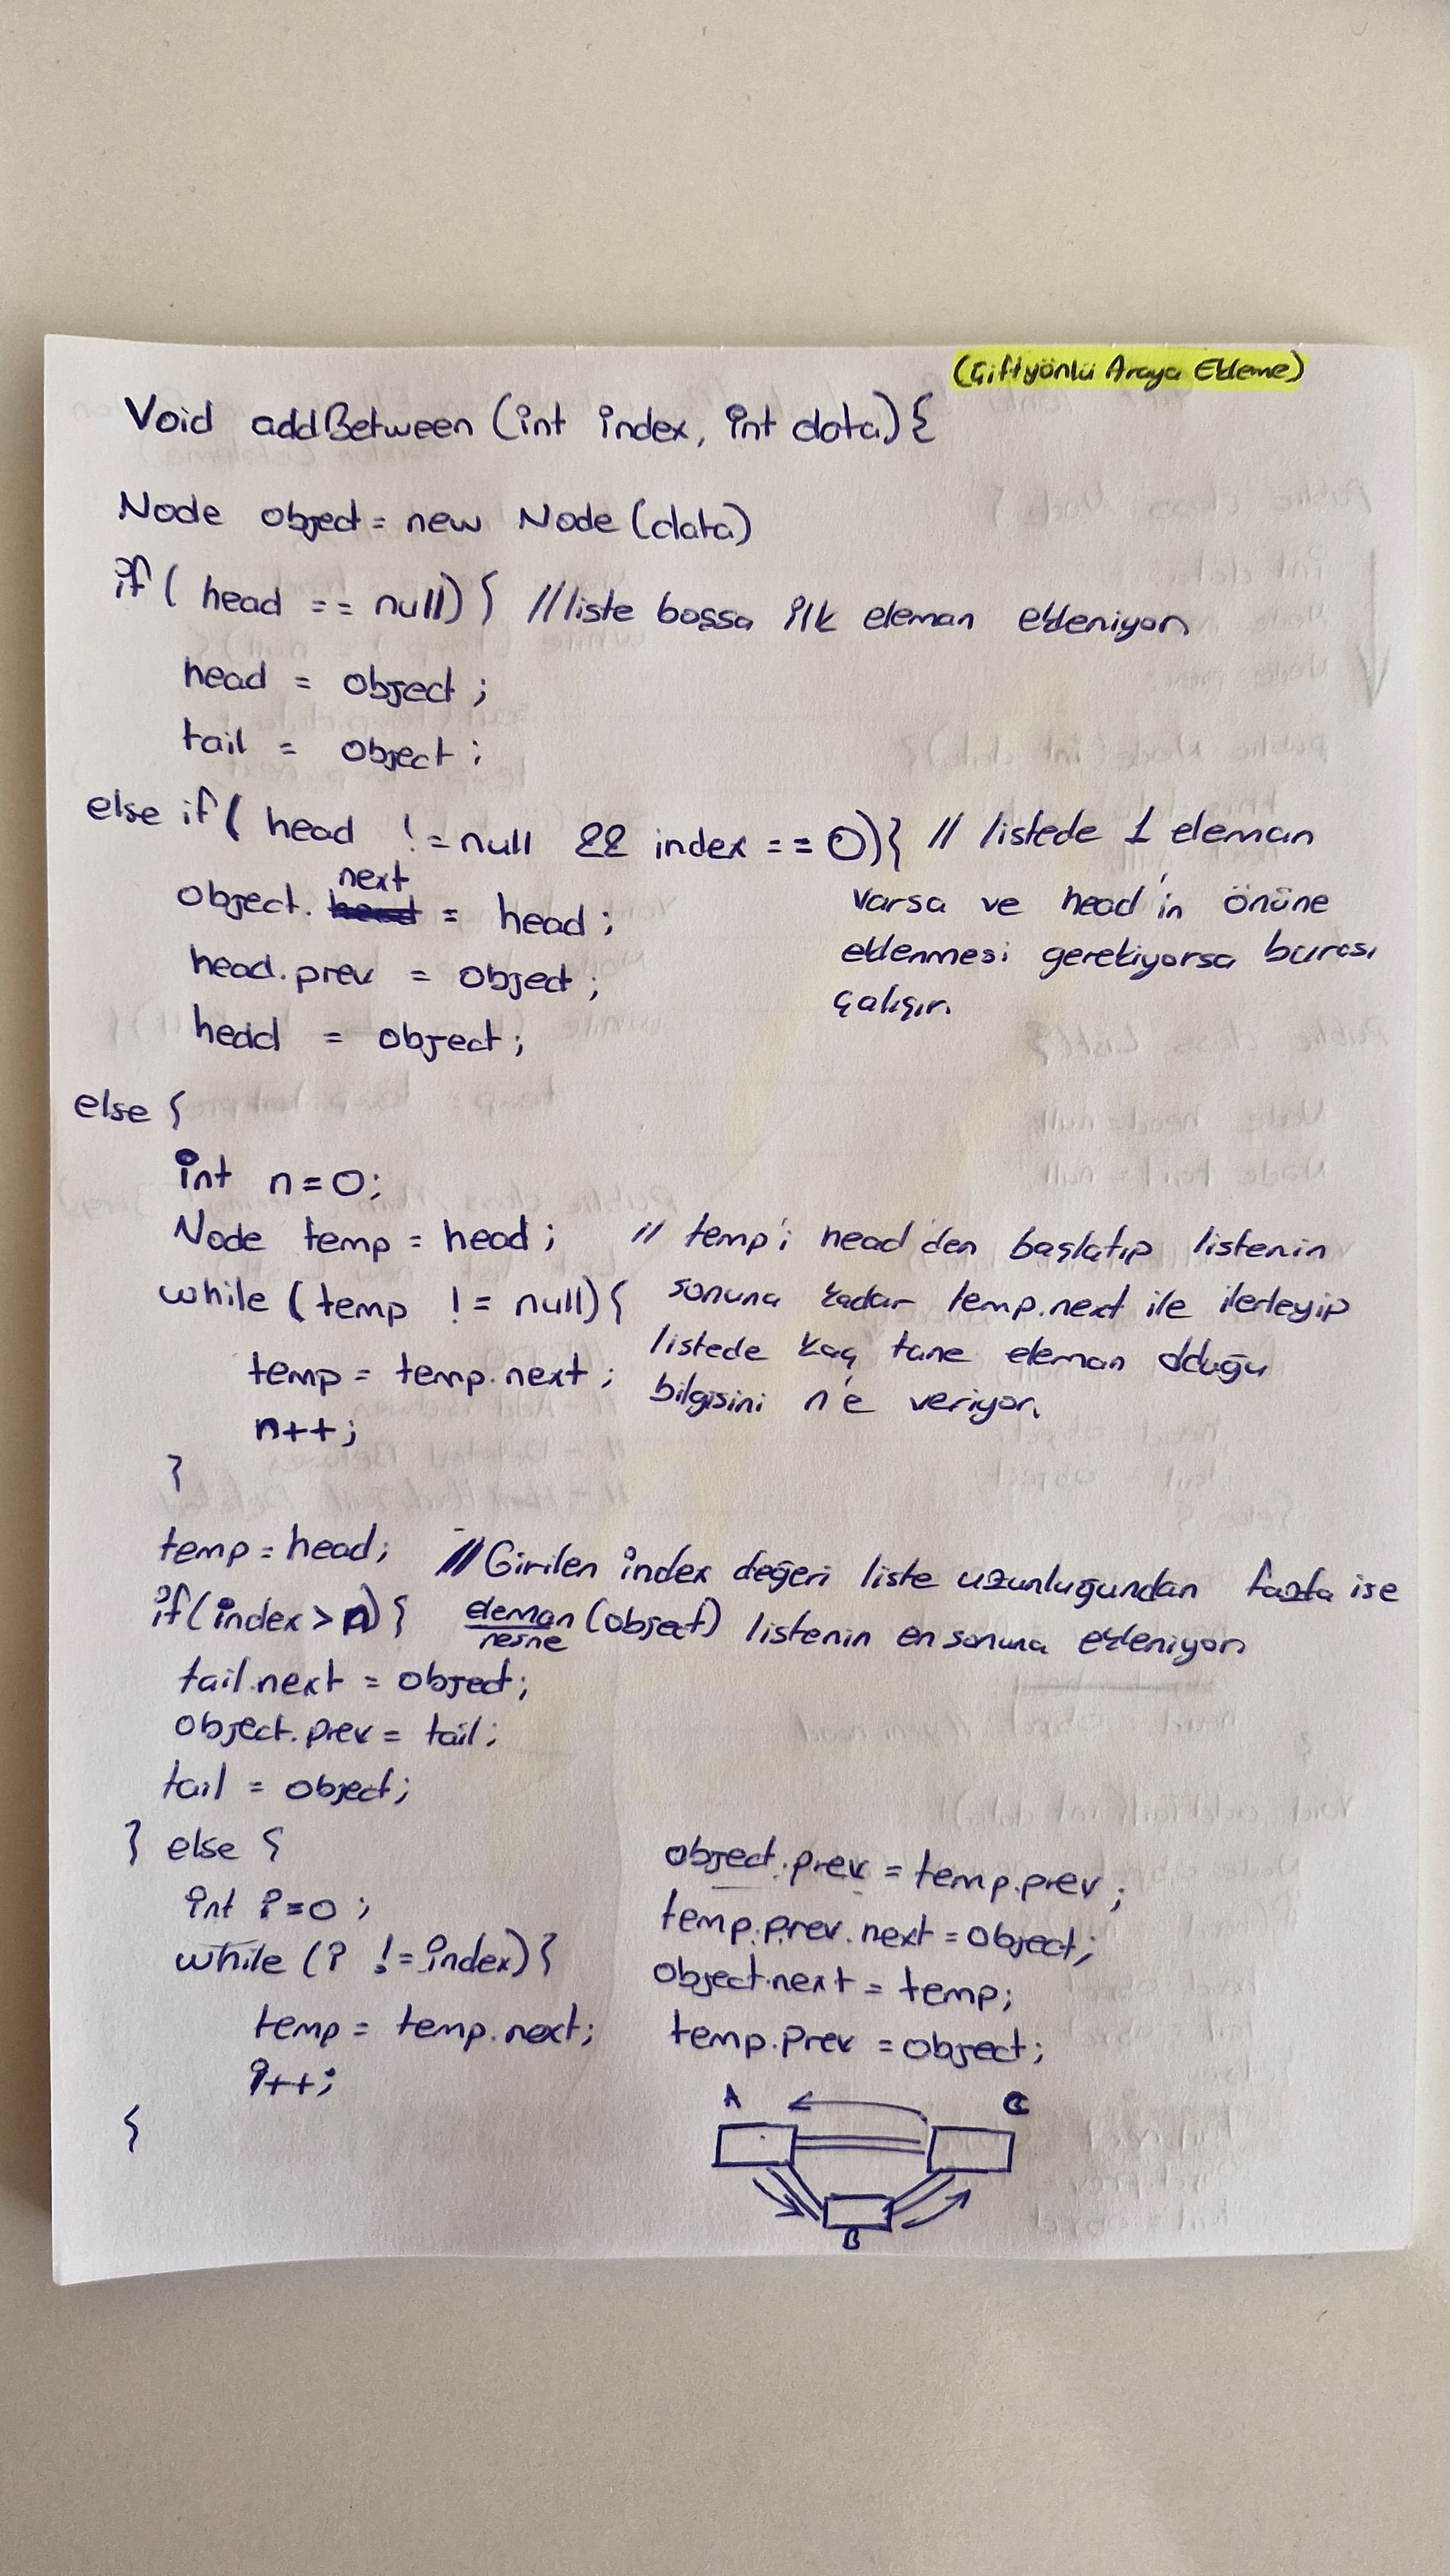 (Çiftyönlü Araya Ekleme)
Void addBetween (int index, int data) {
Node object = new Node (data)
if ( head == null) { // liste boşsa ilk eleman ekleniyor
head = object ;
tail = object ;
else if ( head != null && index == 0) { // listede 1 eleman
varsa ve head'in önüne
next
object. head = head ;
eklenmesi gerekiyorsa burası
head.prev = object ;
çalışır.
head = object ;
else {
int n = 0;
Node temp = head ; // temp'i head'den başlatıp listenin
while ( temp != null) { sonuna kadar temp.next ile ilerleyip
listede kaç tane eleman olduğu
temp = temp.next ;
bilgisini n'e veriyor.
n++ ;
}
temp = head; // Girilen index değeri liste uzunluğundan fazla ise
if (index > n) { eleman (object) listenin en sonuna ekleniyor
nesne
tail.next = object;
object.prev = tail;
tail = object;
} else {
int i = 0 ;
while (i != index) {
temp = temp.next;
i++;
{
object.prev = temp.prev ;
temp.prev.next = object;
object.next = temp;
temp.prev = object;
A C
B